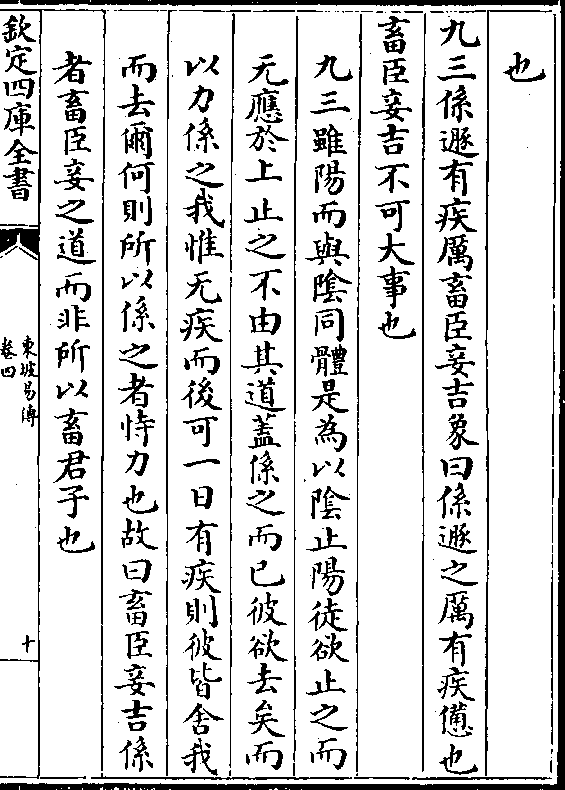 也
九三係遯有疾厲畜臣妾吉象曰係遯之厲有疾憊也
畜臣妾吉不可大事也
九三雖陽而與陰同體是為以陰止陽徒欲止之而
无應於上止之不由其道蓋係之而已彼欲去矣而
以力係之我惟无疾而後可一日有疾則彼皆舍我
而去爾何則所以係之者恃力也故曰畜臣妾吉係
者畜臣妾之道而非所以畜君子也
欽定四庫全書
東坡易傳
卷四
十